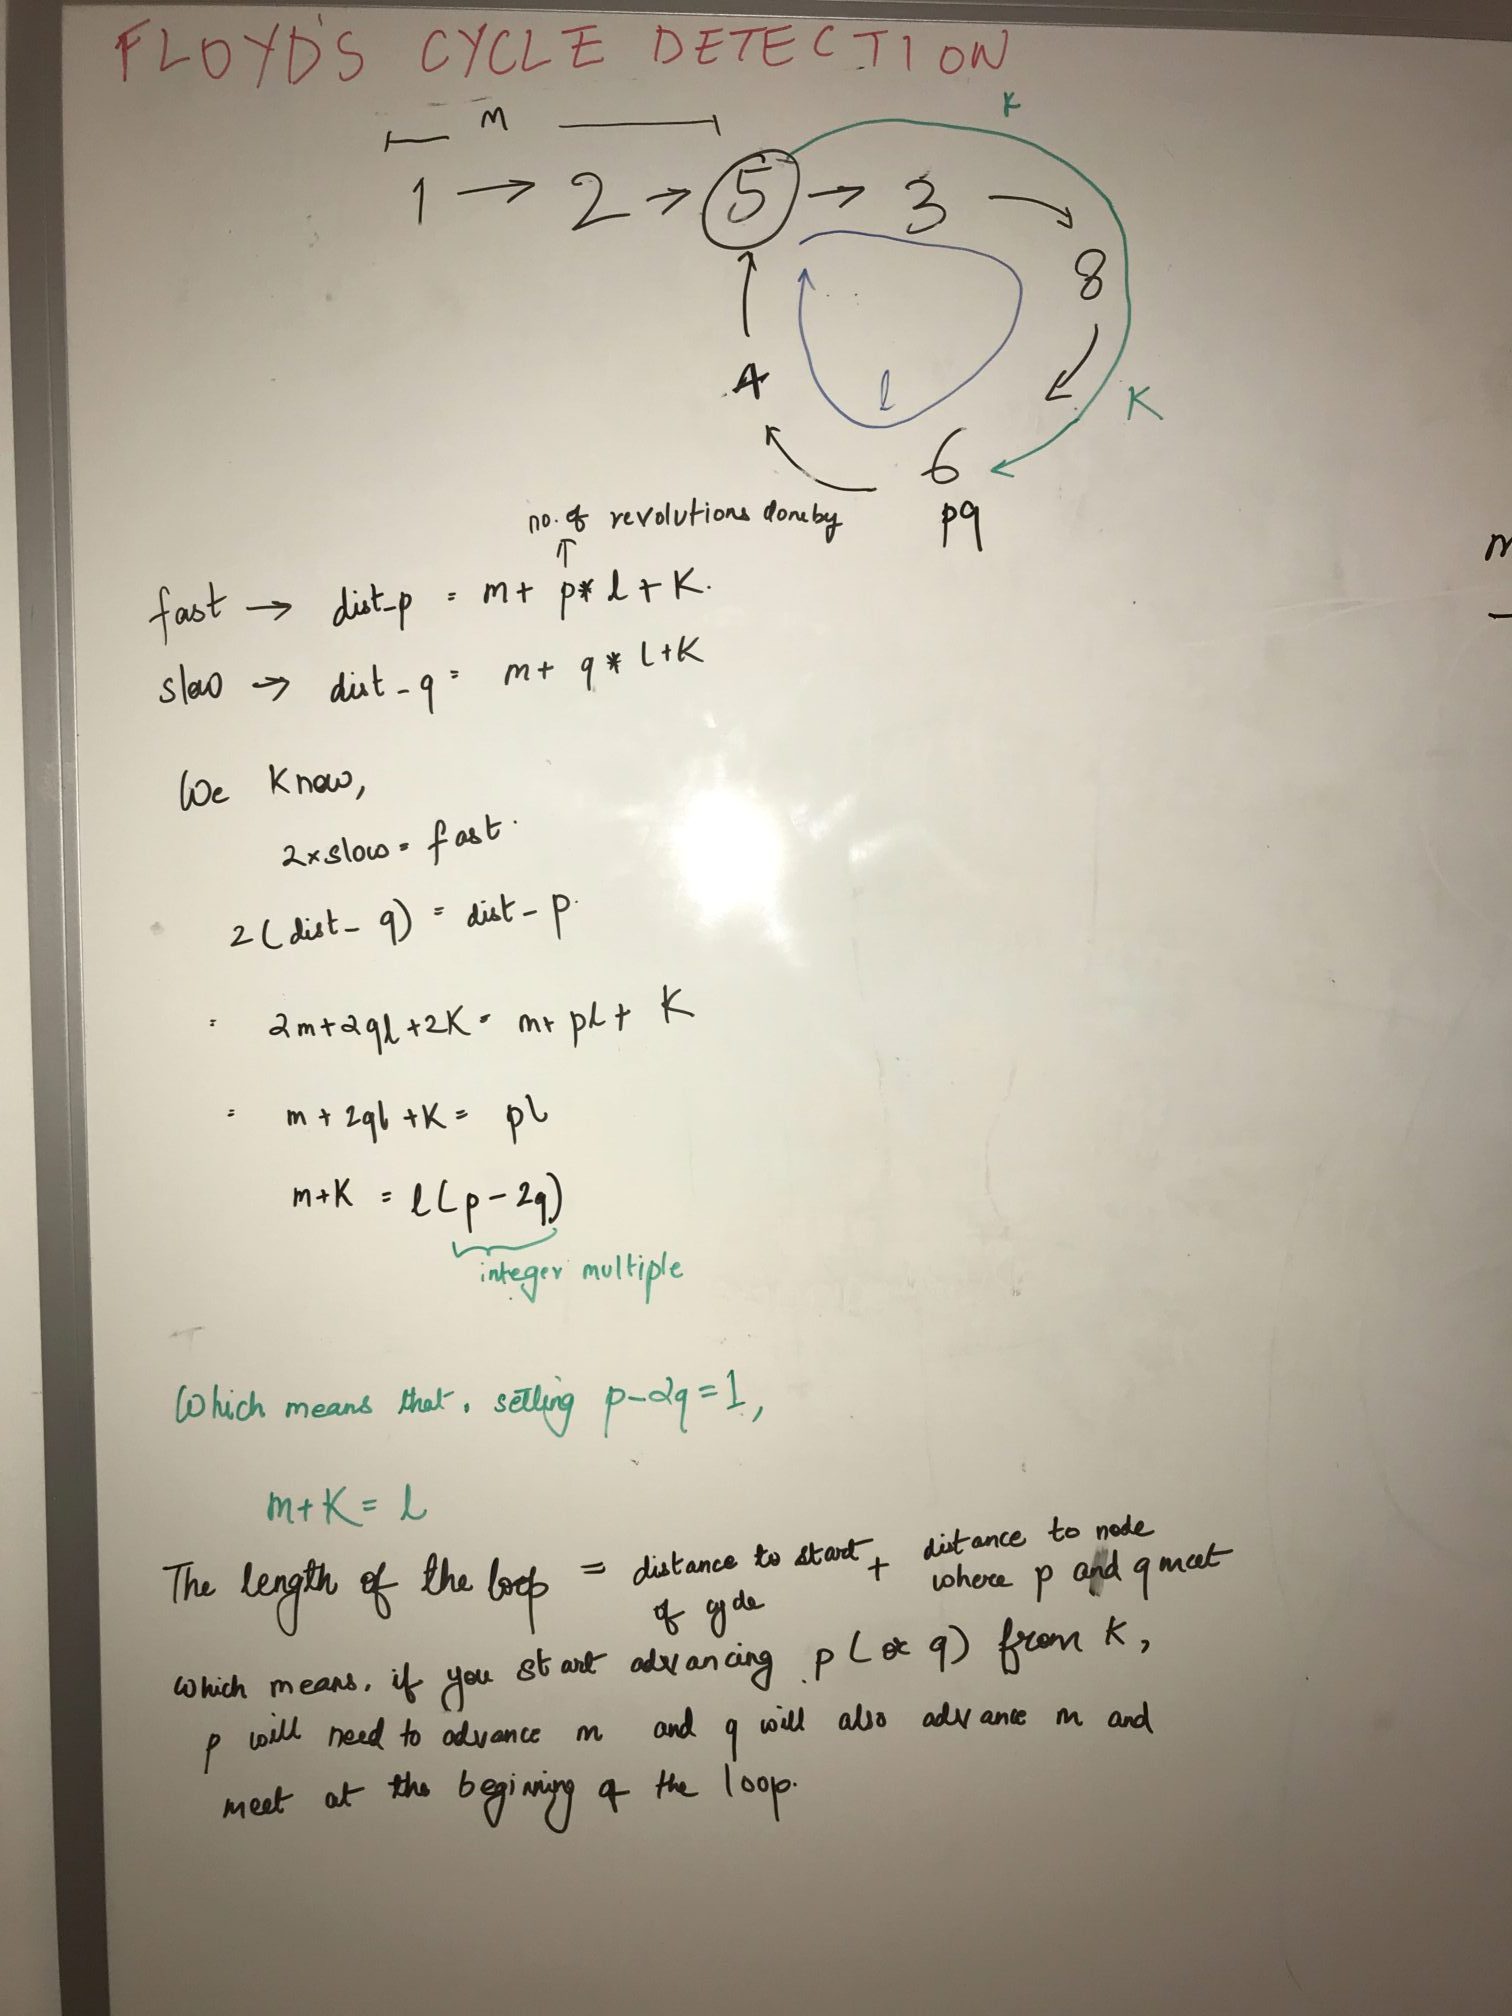 FLOYD'S CYCLE DETECTION
m
K
1 → 2 → 5 → 3
8
4
l
K
6
no. of revolutions done by
pq
↑
fast → dist_p = m + p * l + K.
slow → dist_q = m + q * l + K
We know,
2 x slow = fast.
2 (dist_q) = dist_p.
= 2m + 2ql + 2K = m + pl + K
= m + 2ql + K = pl
m + K = l (p - 2q)
integer multiple
Which means that, setting p - 2q = 1,
m + K = l
The length of the loop = distance to start of cycle + distance to node where p and q meet
which means, if you start advancing p (or q) from K,
p will need to advance m and q will also advance m and
meet at the beginning of the loop.